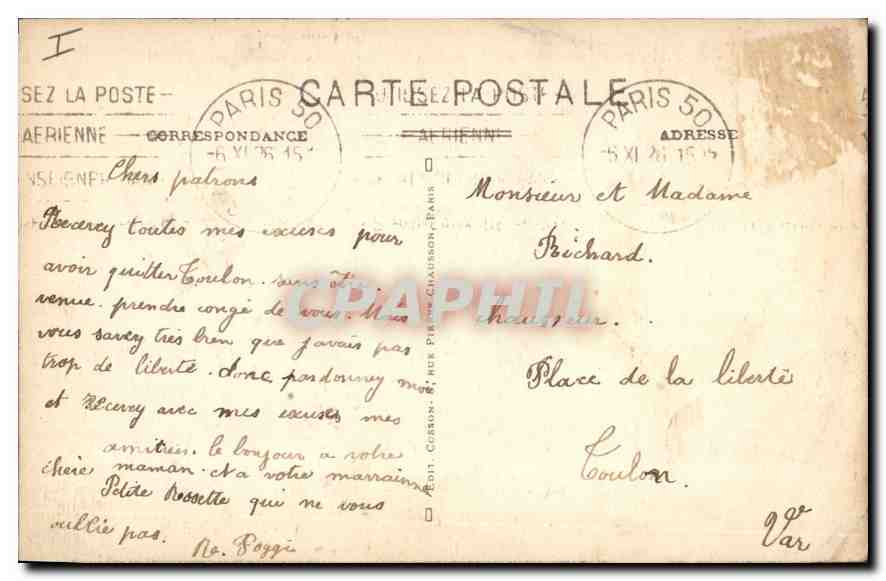 I
CARTE POSTALE
SEZ LA POSTE
AERIENNE
PARIS 50
6 XI 26 15
UTILISEZ LA POSTE
AERIENNE
PARIS 50
6 XI 26 15
CORRESPONDANCE
ADRESSE
Chers patrons
Recevey toutes mes excuses pour
avoir quitter Toulon. sans être
venue. prendre congé de vous. Mais
vous savey très bien que j'avais pas
trop de liberté. donc pardonney moi
et Recevey avec mes excuses mes
amitiées. le bonjour a votre
chère maman. et a votre marrainne
Petite Rossette qui ne vous
oublie pas.
Re. Poggi
EDIT. COSSON. RUE PIERRE CHAUSSON, PARIS
CPAPHIL
Monsieur et Madame
Richard.
chausseur.
Place de la liberté
Toulon.
Var